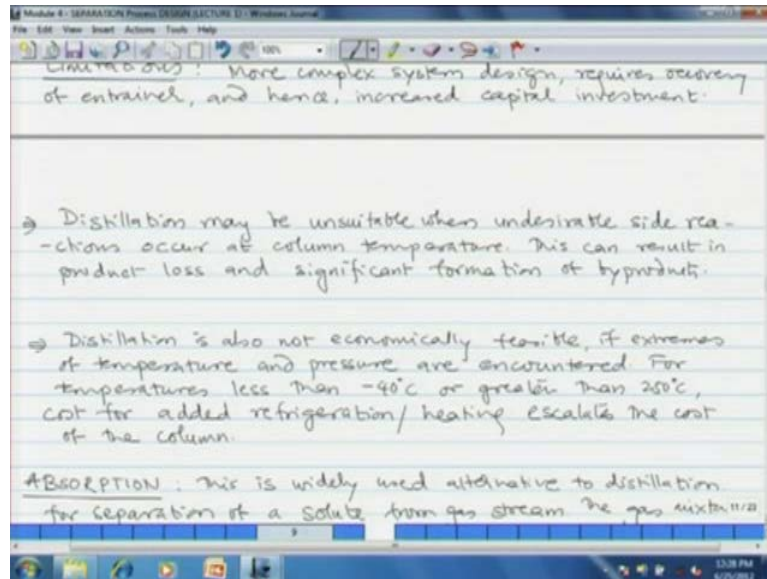 Module 4 - SEPARATION Process DESIGN (LECTURE 1) - Windows Journal
File Edit View Insert Actions Tools Help
100%
Limitations: More complex system design, requires recovery
of entrainer, and hence, increased capital investment.
⇒ Distillation may be unsuitable when undesirable side rea-
-ctions occur at column temperature. This can result in
product loss and significant formation of byproducts.
⇒ Distillation is also not economically feasible, if extremes
of temperature and pressure are encountered. For
temperatures less than -40°C or greater than 250°C,
cost for added refrigeration/ heating escalates the cost
of the column.
ABSORPTION: This is widely used alternative to distillation
for separation of a solute from gas stream The gas mixtu
11/23
9
12:28 PM
6/25/2012